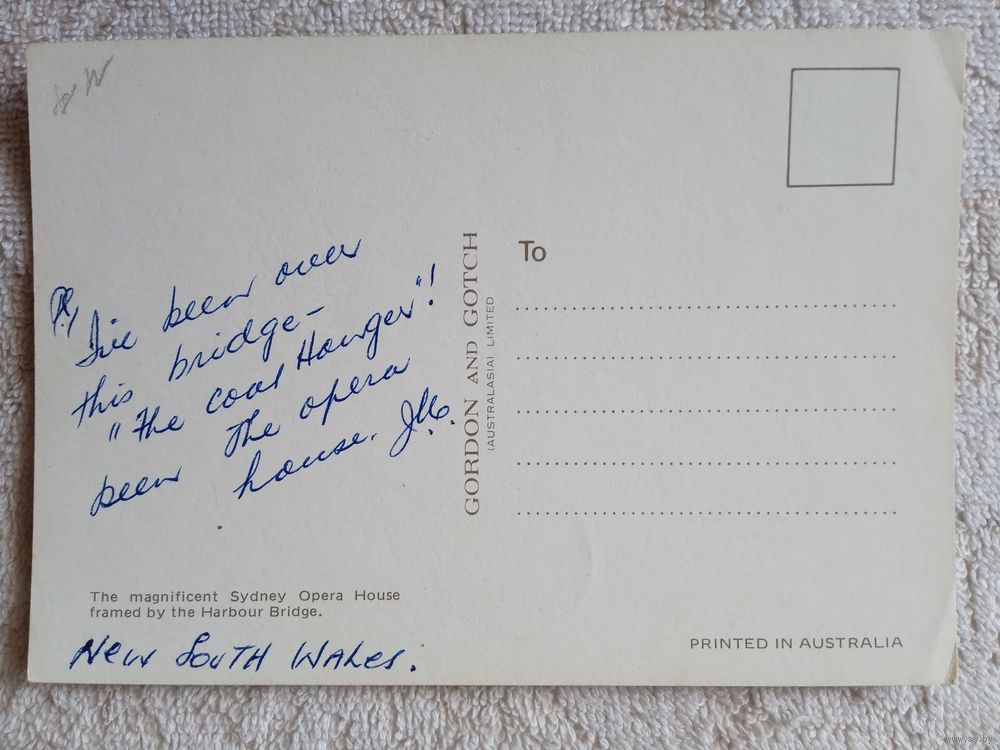 I've been over
this bridge -
"The coat Hanger"!
been The opera
house.
The magnificent Sydney Opera House
framed by the Harbour Bridge.
New South Wales.
GORDON AND GOTCH
(AUSTRALASIA) LIMITED
To
PRINTED IN AUSTRALIA
www.ay.by